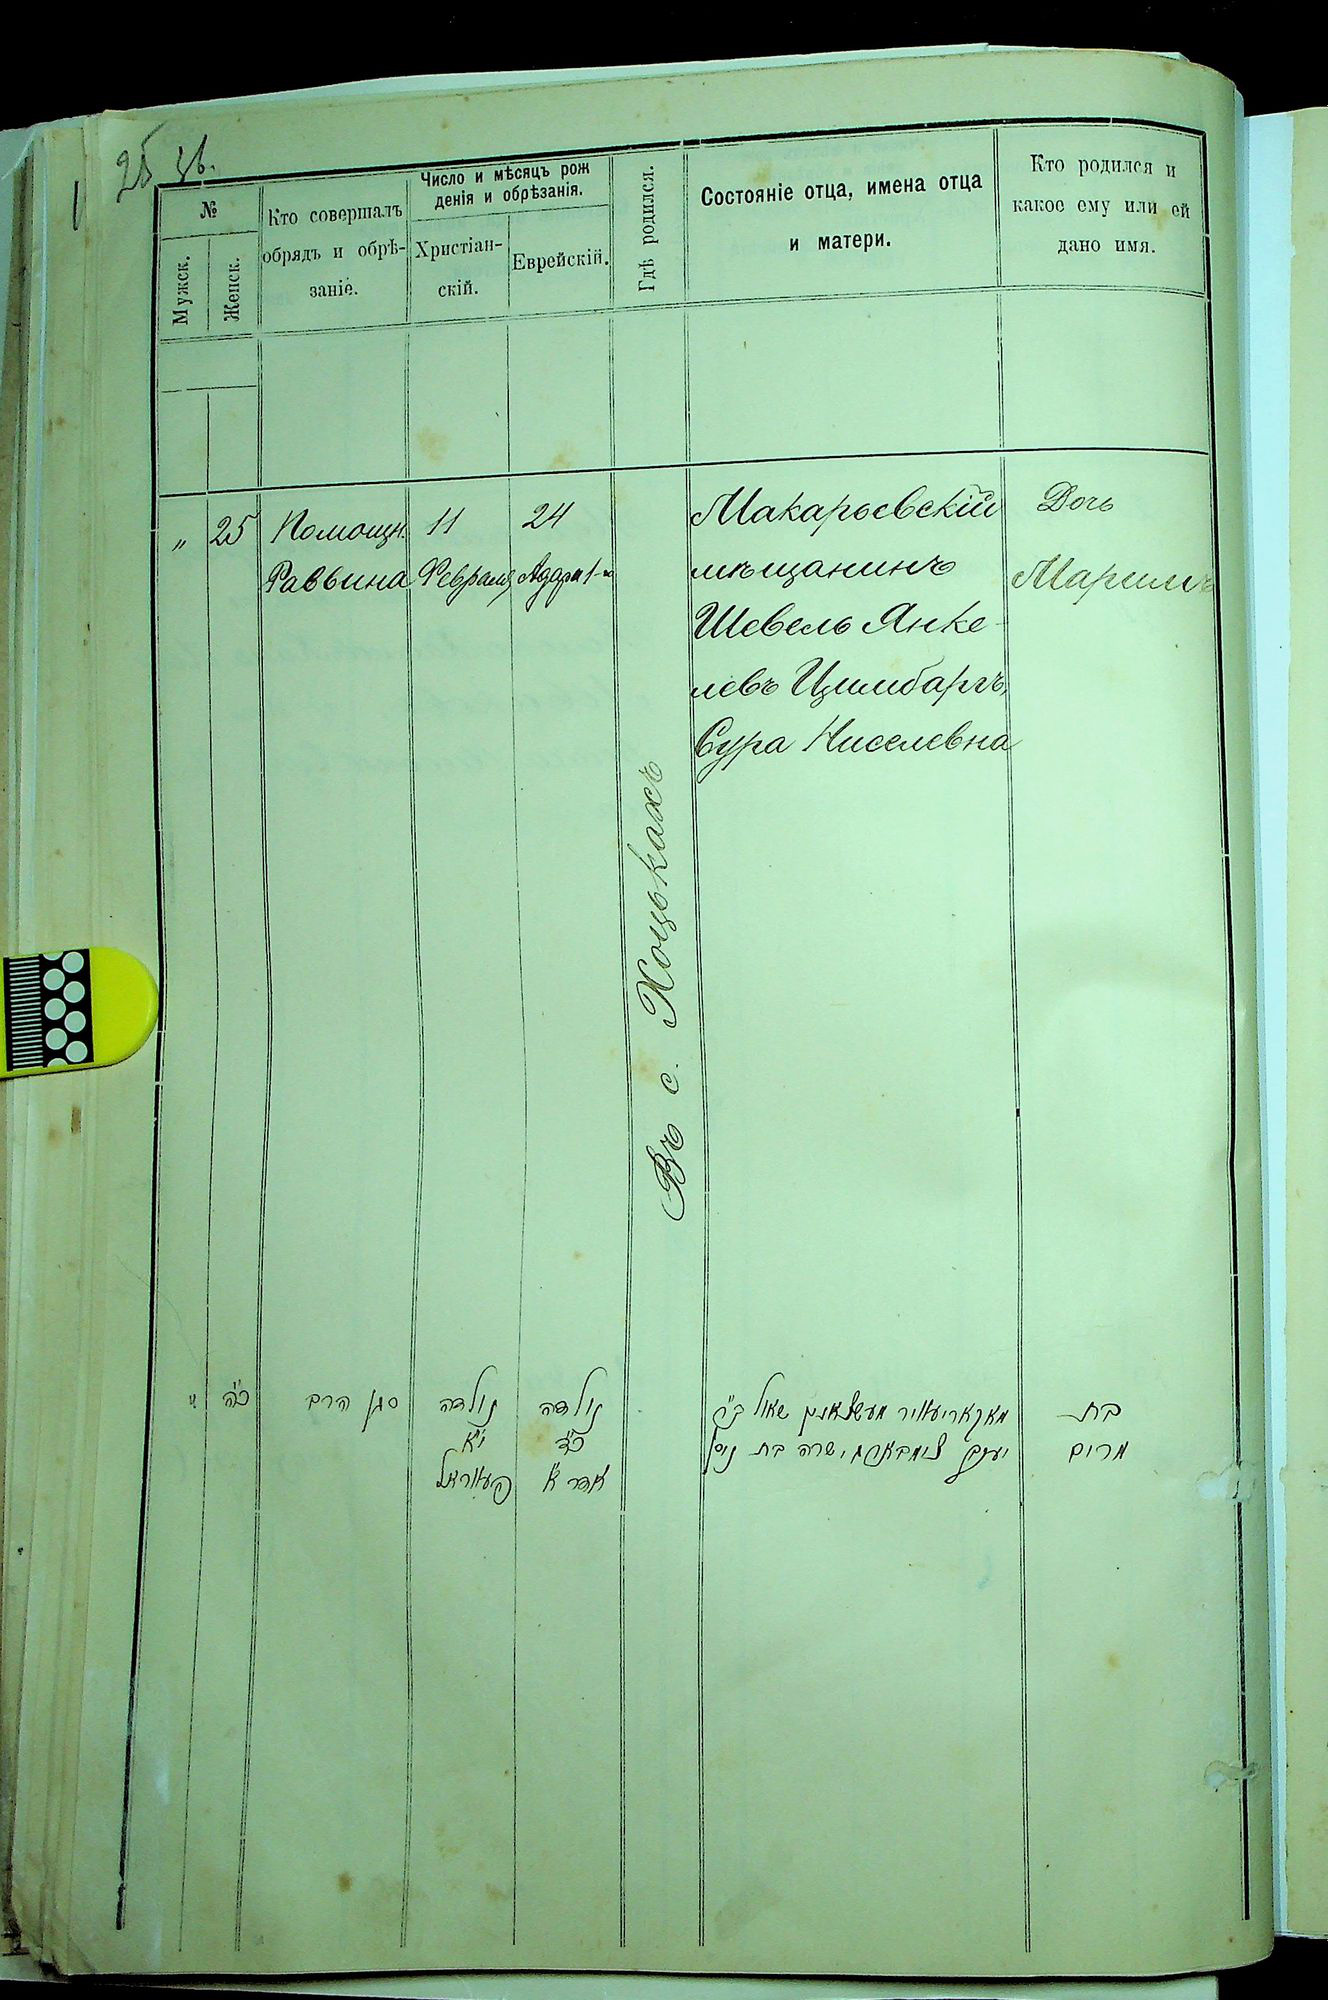 25 зв.
№
Мужск.
Женск.
Кто совершалъ
обрядъ и обрѣ-
заніе.
Число и мѣсяцъ рож
денія и обрѣзанія.
Христіан-
скій.
Еврейскій.
Гдѣ родился.
Состояніе отца, имена отца
и матери.
Кто родился и
какое ему или ей
дано имя.
„
25
Помощн.
Раввина
11
Февраля
24
Адара 1-го
Въ с. Хоцькахъ
Макарьевскій
мѣщанинъ
Шевель Янке-
левъ Цимбаргъ,
Сура Ниселевна
Дочь
Маримъ
"
כ"ה
סגן הרב
נולדה
י"א
פעווראל
נולדה
כ"ד
אדר א'
מאקאריעוויר מעשצאנין שאול ב"ר
יענקל צימבארג, שרה בת ניסל
בת
מרים